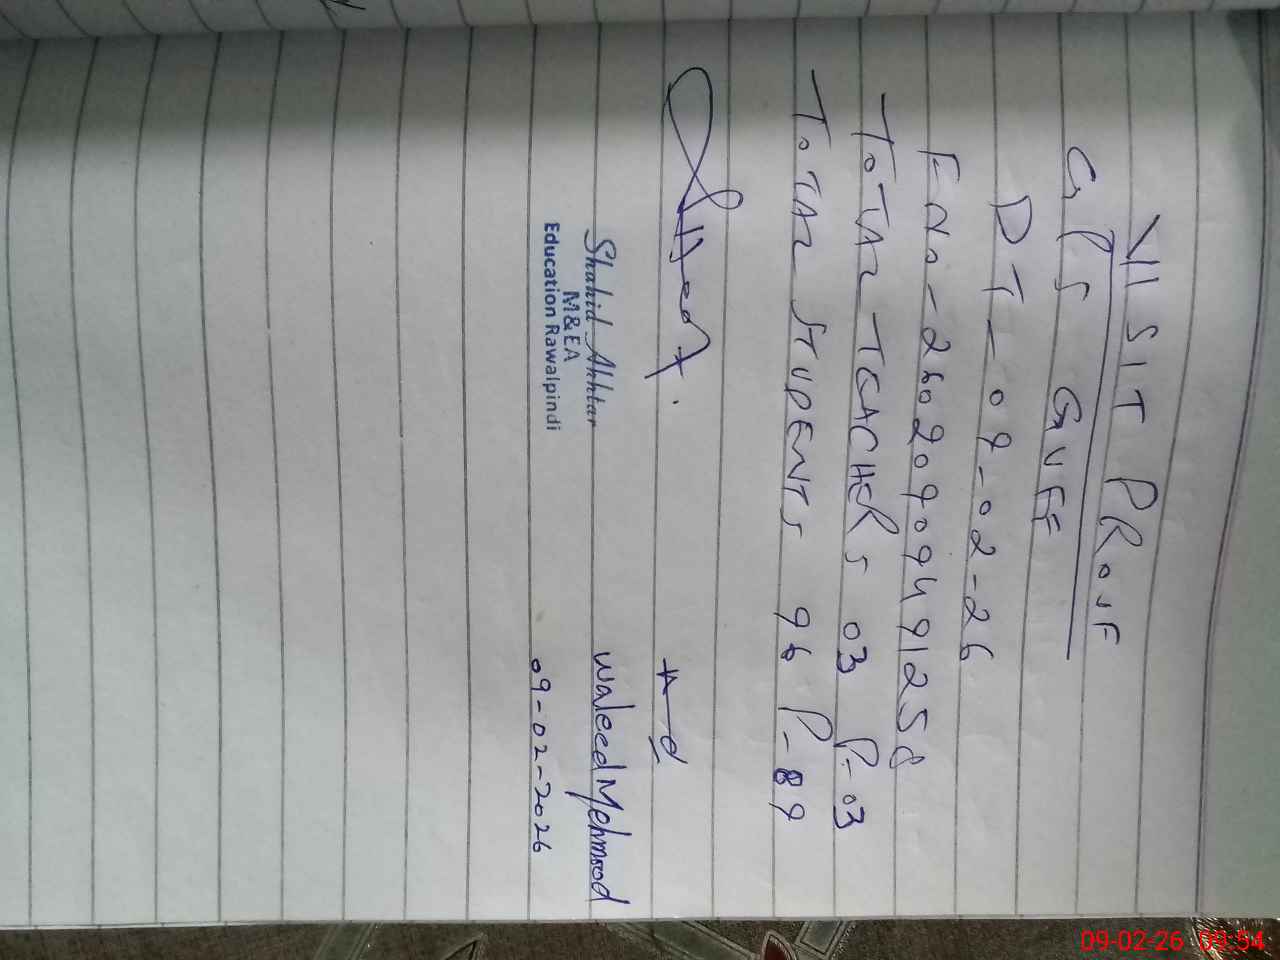 VISIT PROOF
GPS GUFF
DT - 09-02-26
FNo - 26020909491258
TOTAL TEACHERS 03 P-03
TOTAL STUDENTS 96 P-89
Shahid Akhtar
M&EA
Education Rawalpindi
Waleed Mehmood
09-02-2026
09-02-26 09:54